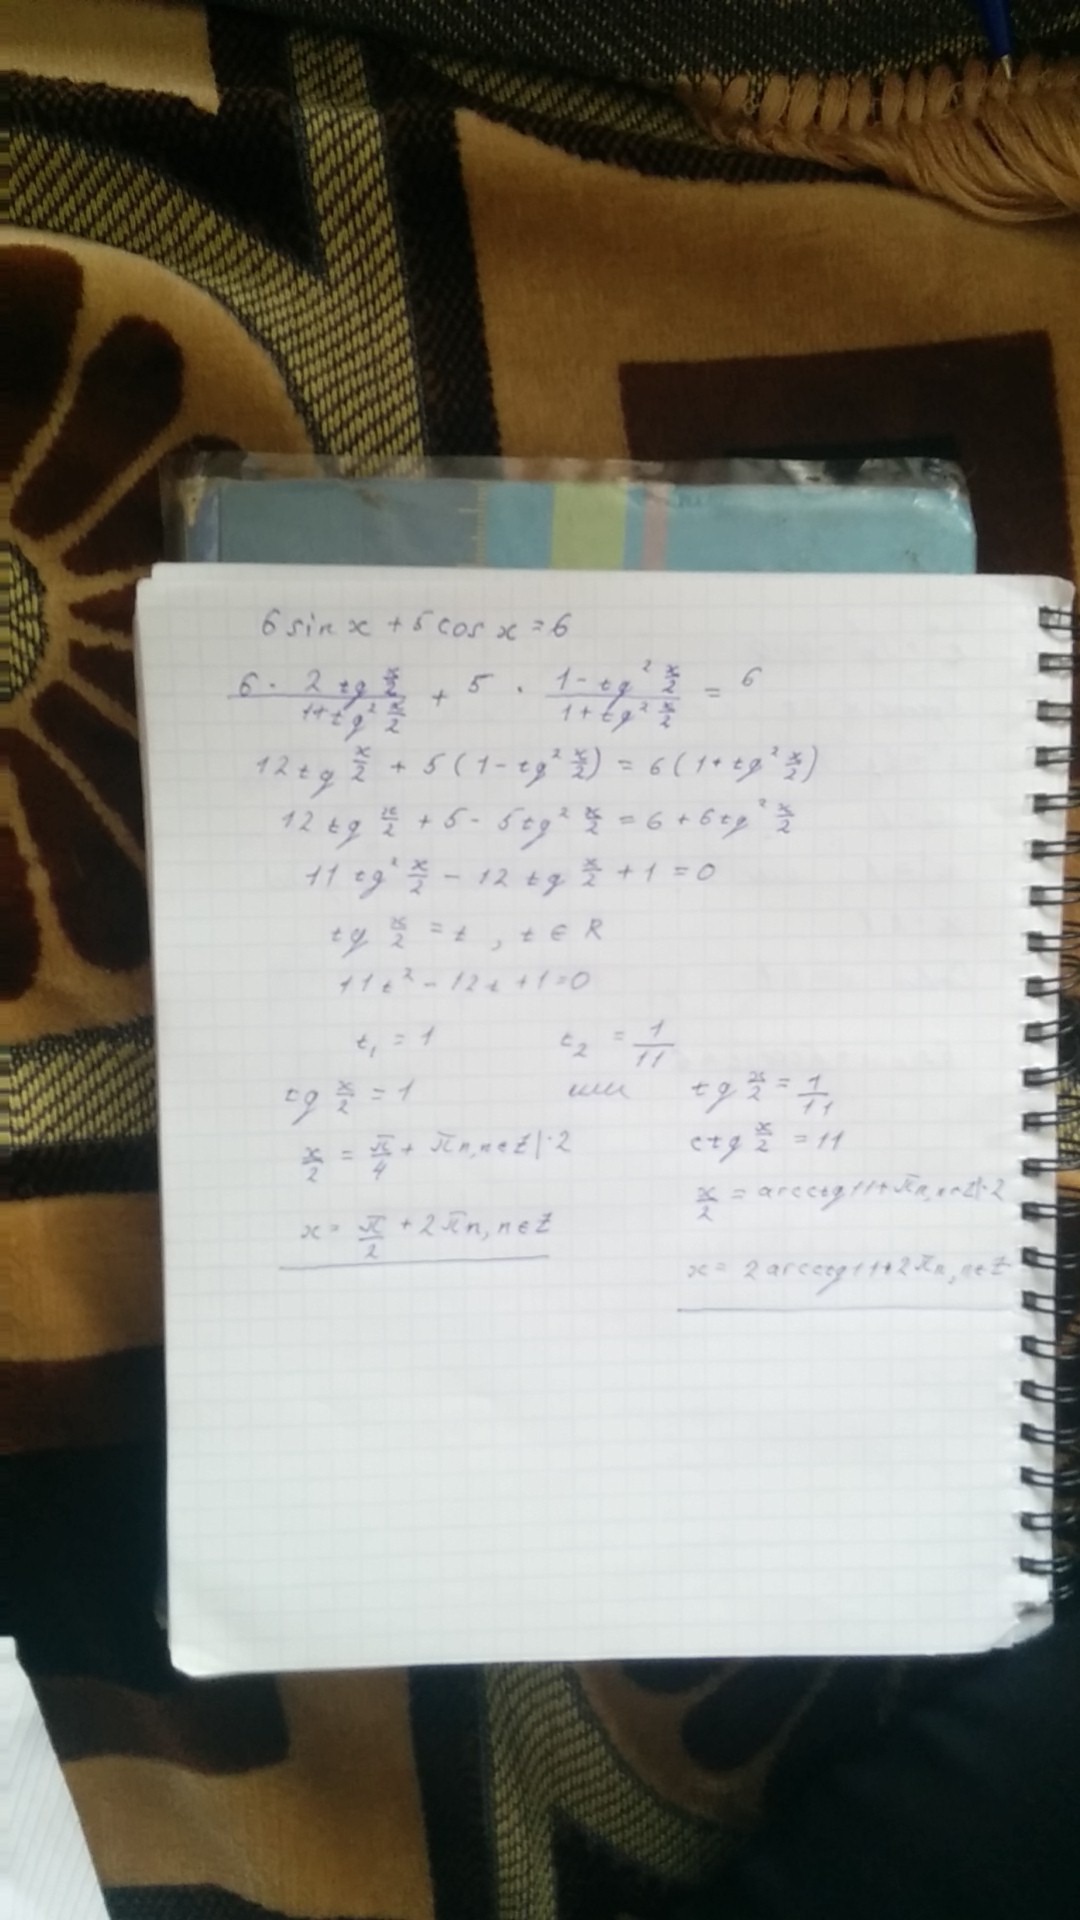 6 sin x + 5 cos x = 6
6 · 2 tg x/2 / 1+tg² x/2 + 5 · 1 - tg² x/2 / 1 + tg² x/2 = 6
12 tg x/2 + 5 (1 - tg² x/2) = 6 (1 + tg² x/2)
12 tg x/2 + 5 - 5 tg² x/2 = 6 + 6 tg² x/2
11 tg² x/2 - 12 tg x/2 + 1 = 0
tg x/2 = t , t ∈ R
11 t² - 12 t + 1 = 0
t₁ = 1 t₂ = 1/11
tg x/2 = 1 или tg x/2 = 1/11
ctg x/2 = 11
x/2 = π/4 + πn, n ∈ Z |·2
x/2 = arcctg 11 + πn, n ∈ Z |·2
x = π/2 + 2πn, n ∈ Z
x = 2 arcctg 11 + 2πn, n ∈ Z